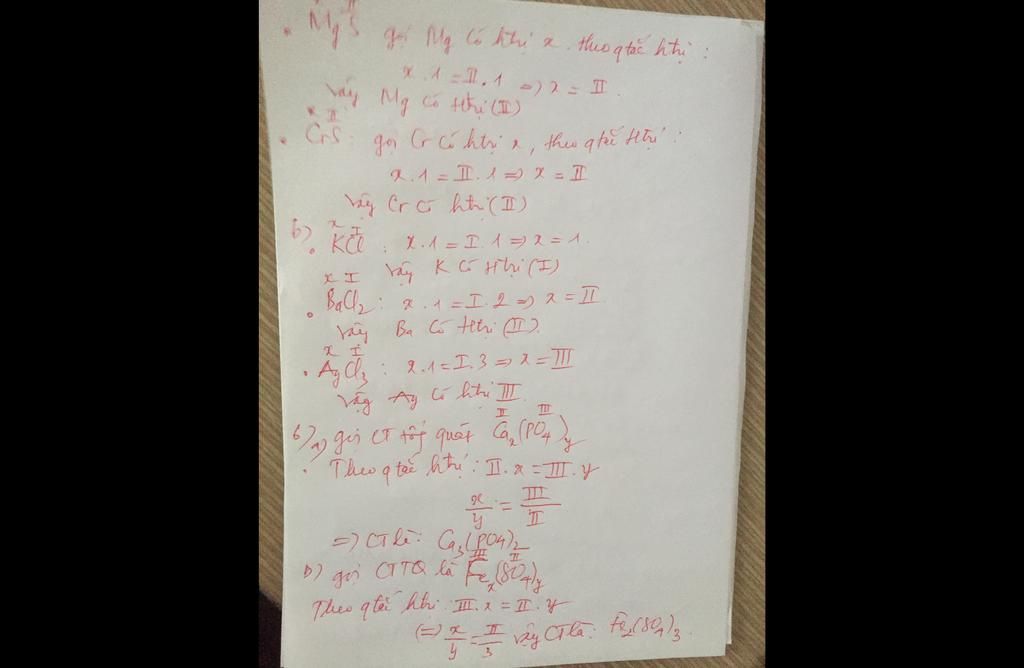 x II
• MgS gọi Mg có htrị x. theo qtắc htrị :
x.1 = II.1 => x = II.
Vậy Mg có Htrị (II)
x II
• CrS: gọi Cr có htrị x, theo qtắc Htrị :
x.1 = II.1 => x = II
Vậy Cr có htrị (II)
x I
b) • KCl : x.1 = I.1 => x = 1.
Vậy K có Htrị (I)
x I
• BaCl2 : x.1 = I.2 => x = II
Vậy Ba có Htrị (II).
x I
• AgCl3 : x.1 = I.3 => x = III
Vậy Ag có htrị III.
II III
6) a) gọi CT tổng quát Cax(PO4)y
• Theo qtắc htrị : II.x = III.y
x/y = III/II
=> CT là: Ca3(PO4)2
III II
b) gọi CTTQ là Fex(SO4)y
Theo qtắc htrị III.x = II.y
(=) x/y = II/3 vậy CT là: Fe2(SO4)3